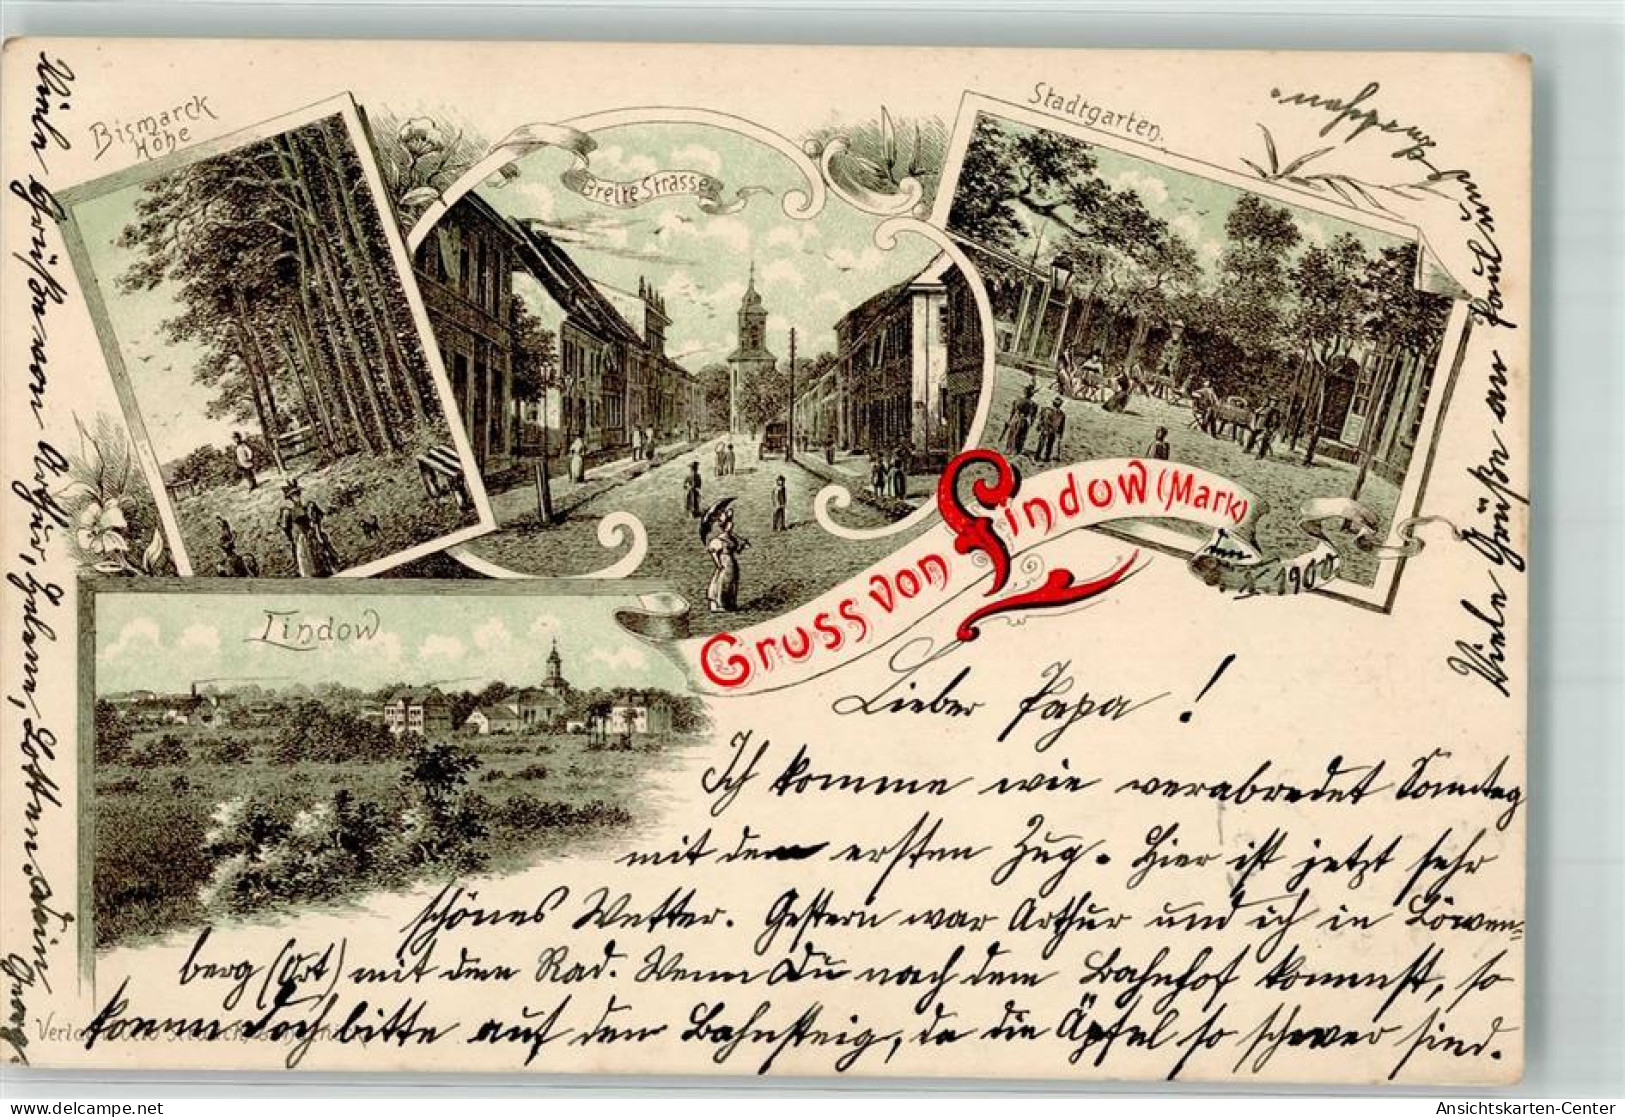 Bismarck
Höhe
Breite Strasse
Stadtgarten.
Lindow
Gruss von Lindow (Mark)
den
X. 1900
Lieber Papa!
Ich komme wie verabredet Sonntag
mit dem ersten Zug. Hier ist jetzt sehr
schönes Wetter. Gestern war Arthur und ich in Löwen-
berg (Ort) mit dem Rad. Wenn Du nach dem Bahnhof kommst, so
komm doch bitte auf den Bahnsteig, da die Äpfel so schwer sind.
Viele Grüße von Arthur, Lotte. Dein
Georg.
Viele Grüße an Paul und
Verlag v. Otto
Ansichtskarten-Center